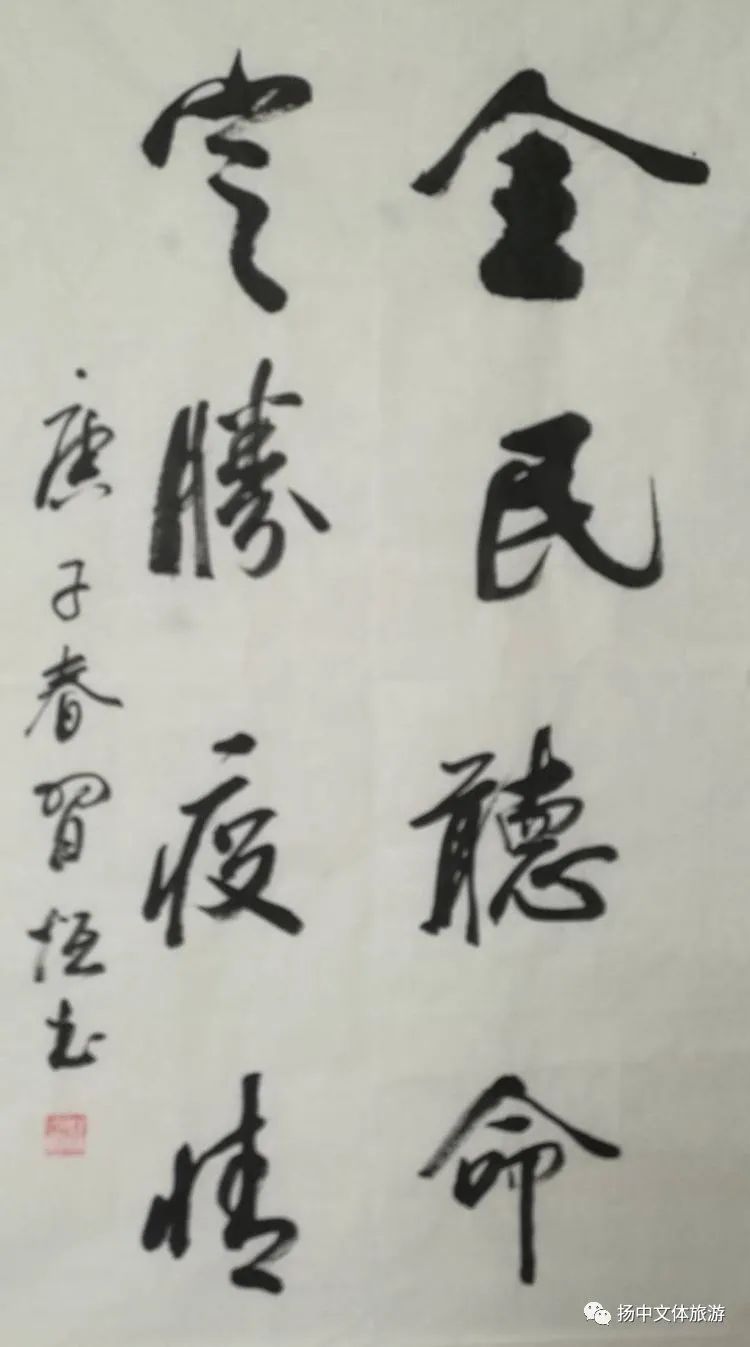 全民聽命
定勝疫情
庚子春習恒书
扬中文体旅游